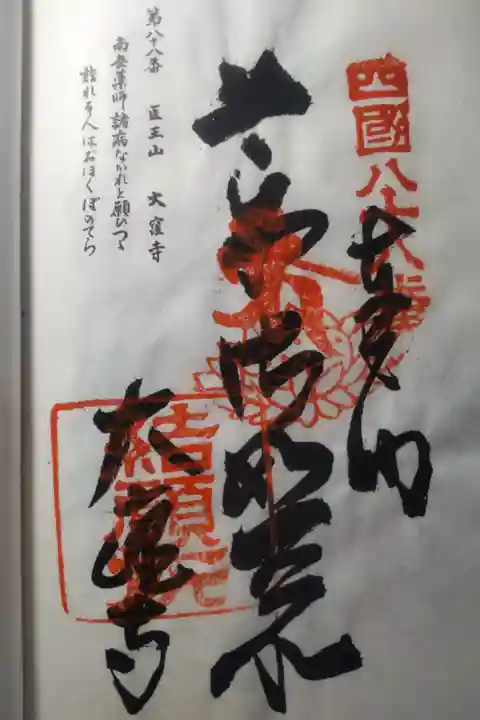 四國八十八番
奉納
薬師如来
結願所
大窪寺
第八十八番　医王山　大窪寺
南無薬師諸病なかれと願ひつゝ
詣れる人はおほくぼのてら